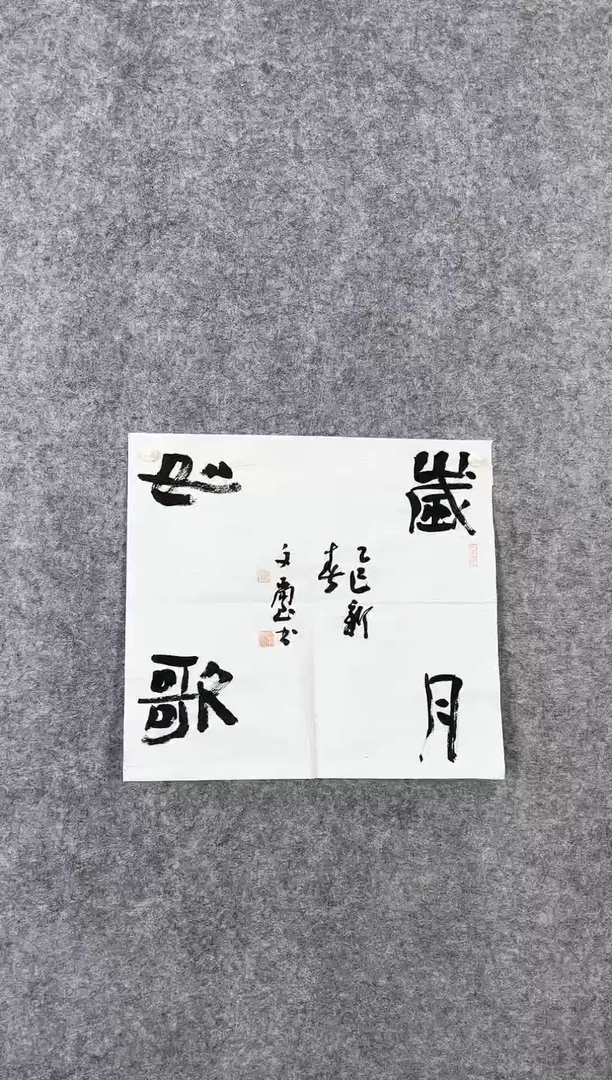 歲月
如歌
乙巳新
春
文
書